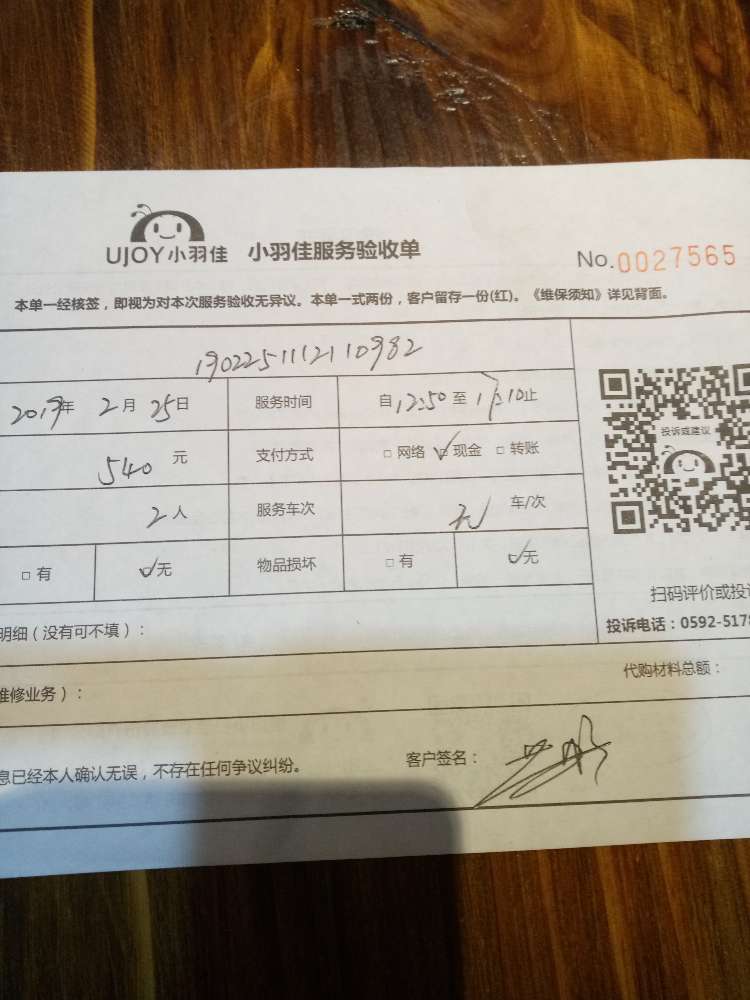 UJOY小羽佳 小羽佳服务验收单 No.0027565
本单一经核签，即视为对本次服务验收无异议。本单一式两份，客户留存一份(红)。《维保须知》详见背面。
1902251112110982
2019年 2月 25日 服务时间 自12:50至17:10止
540 元 支付方式 □网络 ☑现金 □转账
2人 服务车次 车/次
□有 ☑无 物品损坏 □有 ☑无
投诉或建议
扫码评价或投
明细（没有可不填）：
投诉电话：0592-517
维修业务）：
代购材料总额：
息已经本人确认无误，不存在任何争议纠纷。 客户签名：